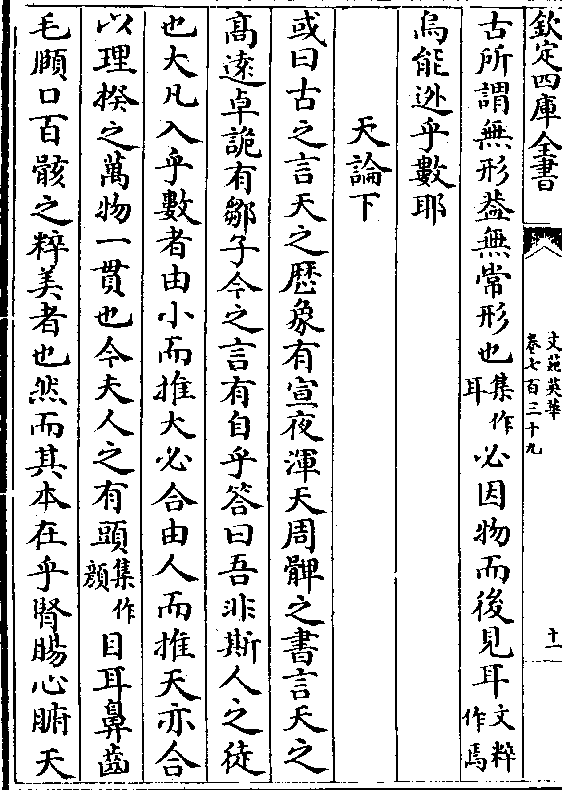 欽定四庫全書
文苑英華
卷七百三十九
十一
古所謂無形蓋無常形也集作耳必因物而後見耳文粹作焉
烏能逃乎數耶
天論下
或曰古之言天之歴象有宣夜渾天周髀之書言天之
髙逺卓詭有鄒子今之言有自乎答曰吾非斯人之徒
也大凡入乎數者由小而推大必合由人而推天亦合
以理揆之萬物一貫也今夫人之有頭集作顔目耳鼻齒
毛頤口百骸之粹美者也然而其本在乎腎腸心腑天